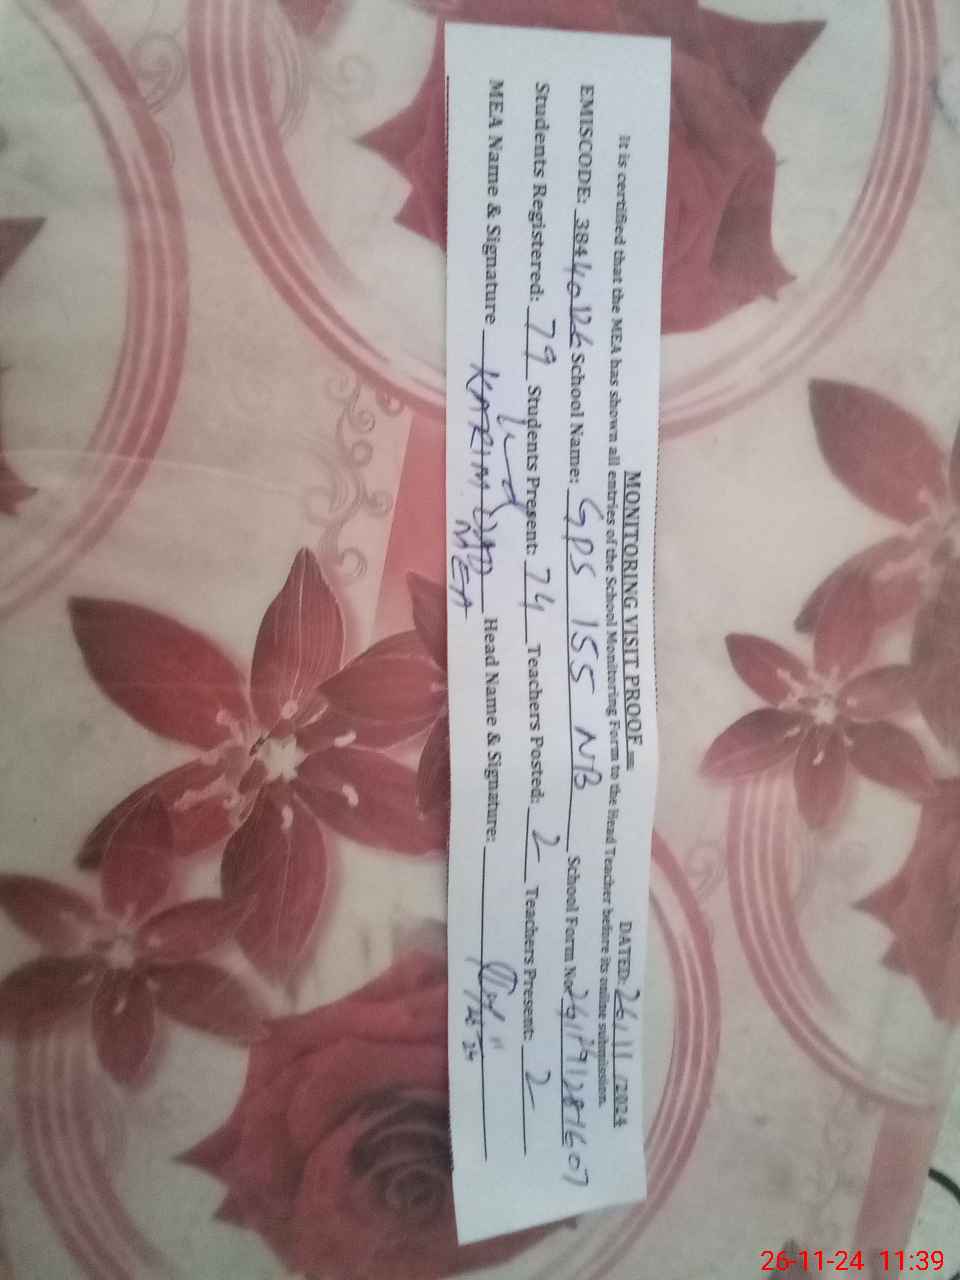 MONITORING VISIT PROOF
DATED: 26/11/2024
It is certified that the MEA has shown all entries of the School Monitoring Form to the Head Teacher before its online submission.
EMISCODE: 38440126 School Name: GPS 155 NB School Form No:
Students Registered: 79 Students Present: 74 Teachers Posted: 2 Teachers Present: 2
MEA Name & Signature KARIM DAD Head Name & Signature:
MEA
26-11-24 11:39